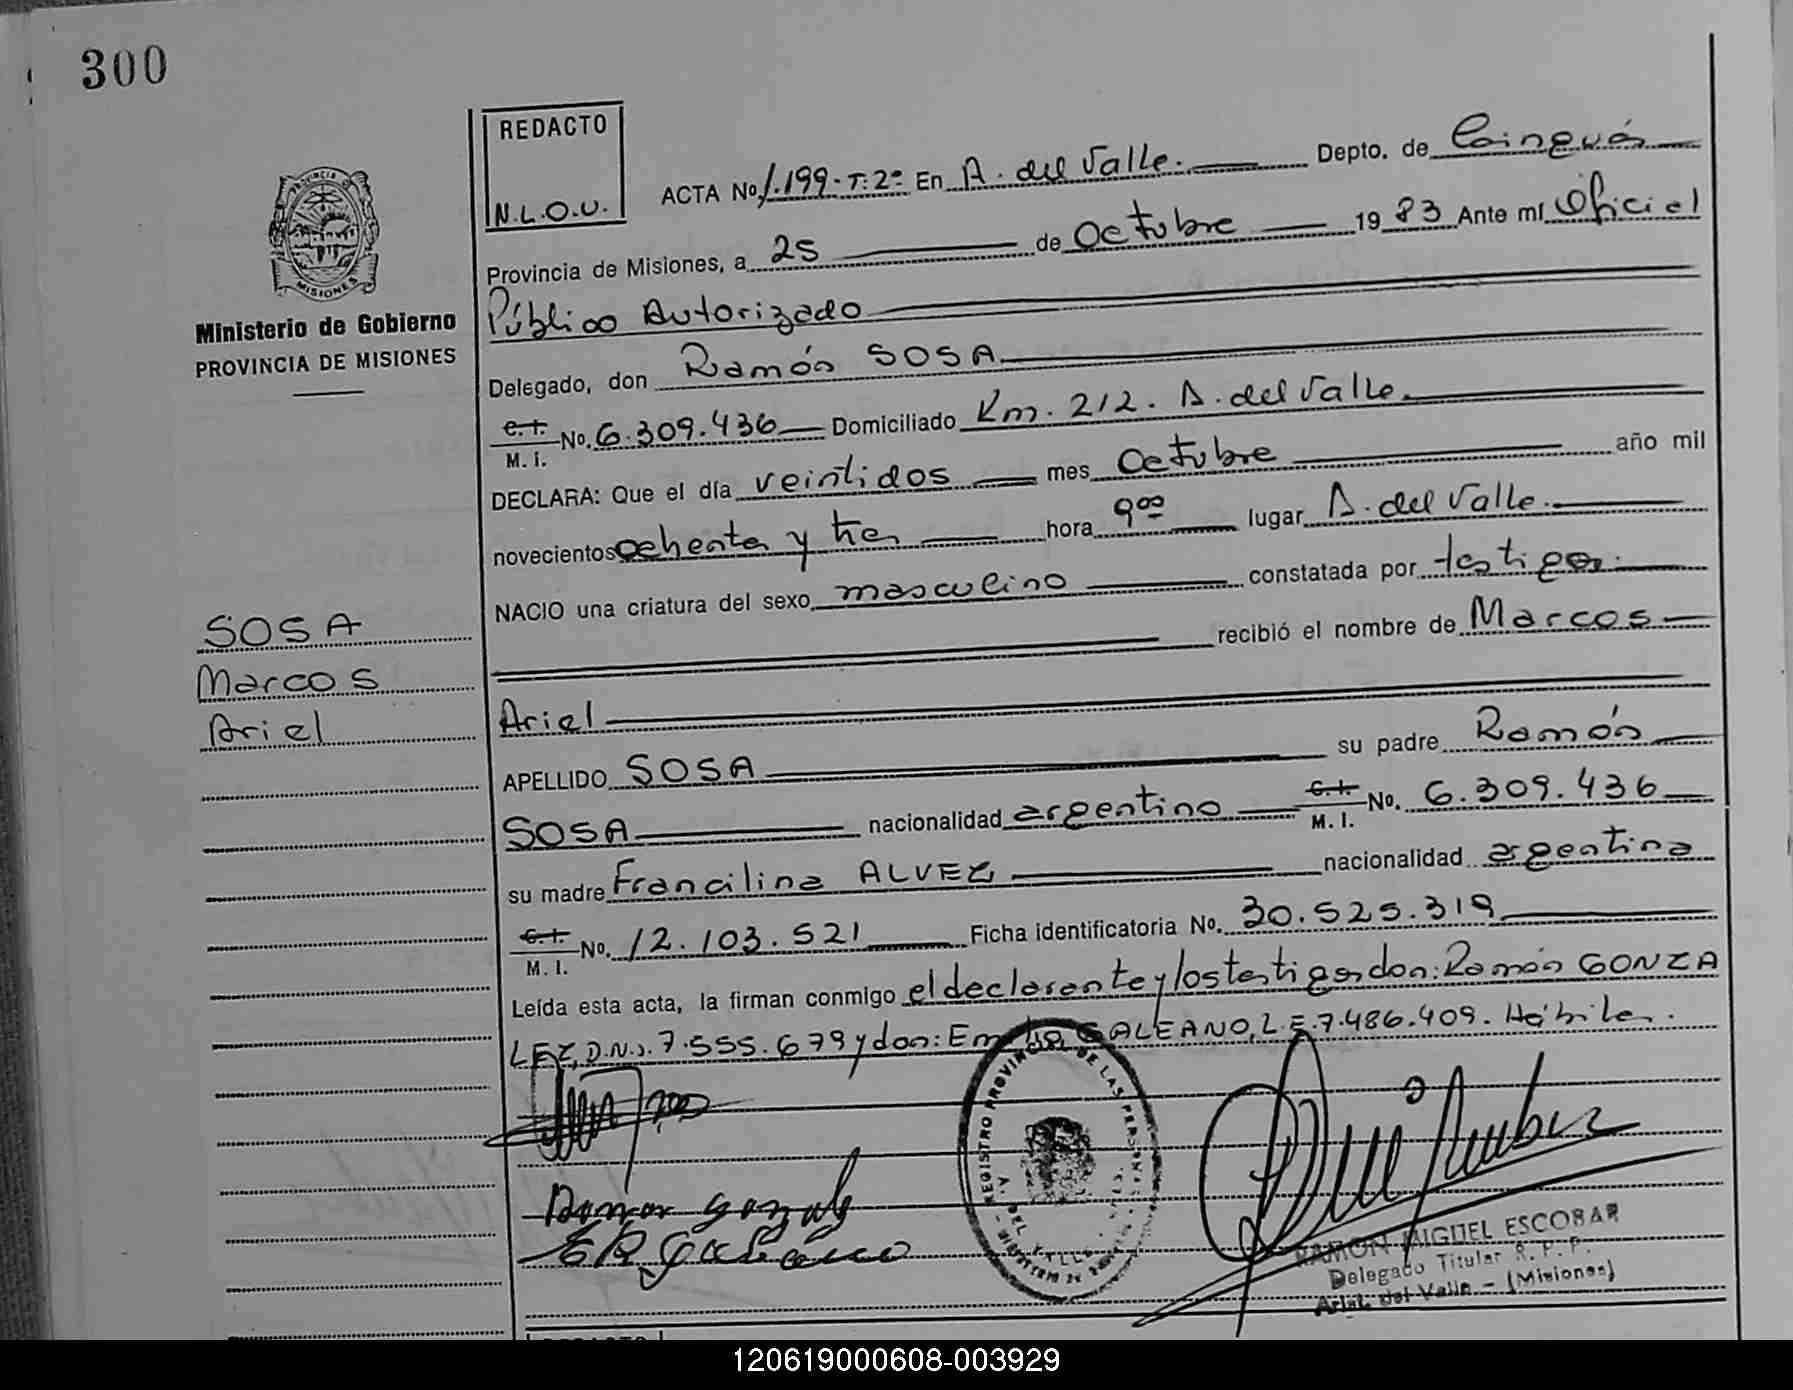 300
REDACTO
N.L.O.U.
PROVINCIA DE
MISIONES
Ministerio de Gobierno
PROVINCIA DE MISIONES
ACTA No 1.199-T:2º En A. del Valle. Depto. de Cainguás
Provincia de Misiones, a 25 de Octubre 1983 Ante mí Oficial
Público Autorizado
Delegado, don Ramón SOSA
C.I. M.I. No. 6.309.436 Domiciliado Km. 212. A. del Valle.
DECLARA: Que el día veintidos mes Octubre año mil
novecientos ochenta y tres hora 9.00 lugar A. del Valle.
NACIO una criatura del sexo masculino constatada por testigos.
recibió el nombre de Marcos
Ariel
APELLIDO SOSA su padre Ramón
SOSA nacionalidad argentino C.I. M.I. No. 6.309.436
su madre Francilina ALVEZ nacionalidad argentina
C.I. M.I. No. 12.103.521 Ficha identificatoria No. 30.525.319
Leída esta acta, la firman conmigo el declarante y los testigos don: Ramón GONZA
LEZ, D.N.I. 7.555.679 y don: Emilio GALEANO, L.E. 7.486.409. Hábiles.
SOSA
Marcos
Ariel
Ramon Gonzalez
E R Galeano
REGISTRO PROVINCIAL DE LAS PERSONAS
A. DEL VALLE
RAMON MIGUEL ESCOBAR
Delegado Titular R. P. P.
Arist. del Valle - (Misiones)
REDACTO
120619000608-003929